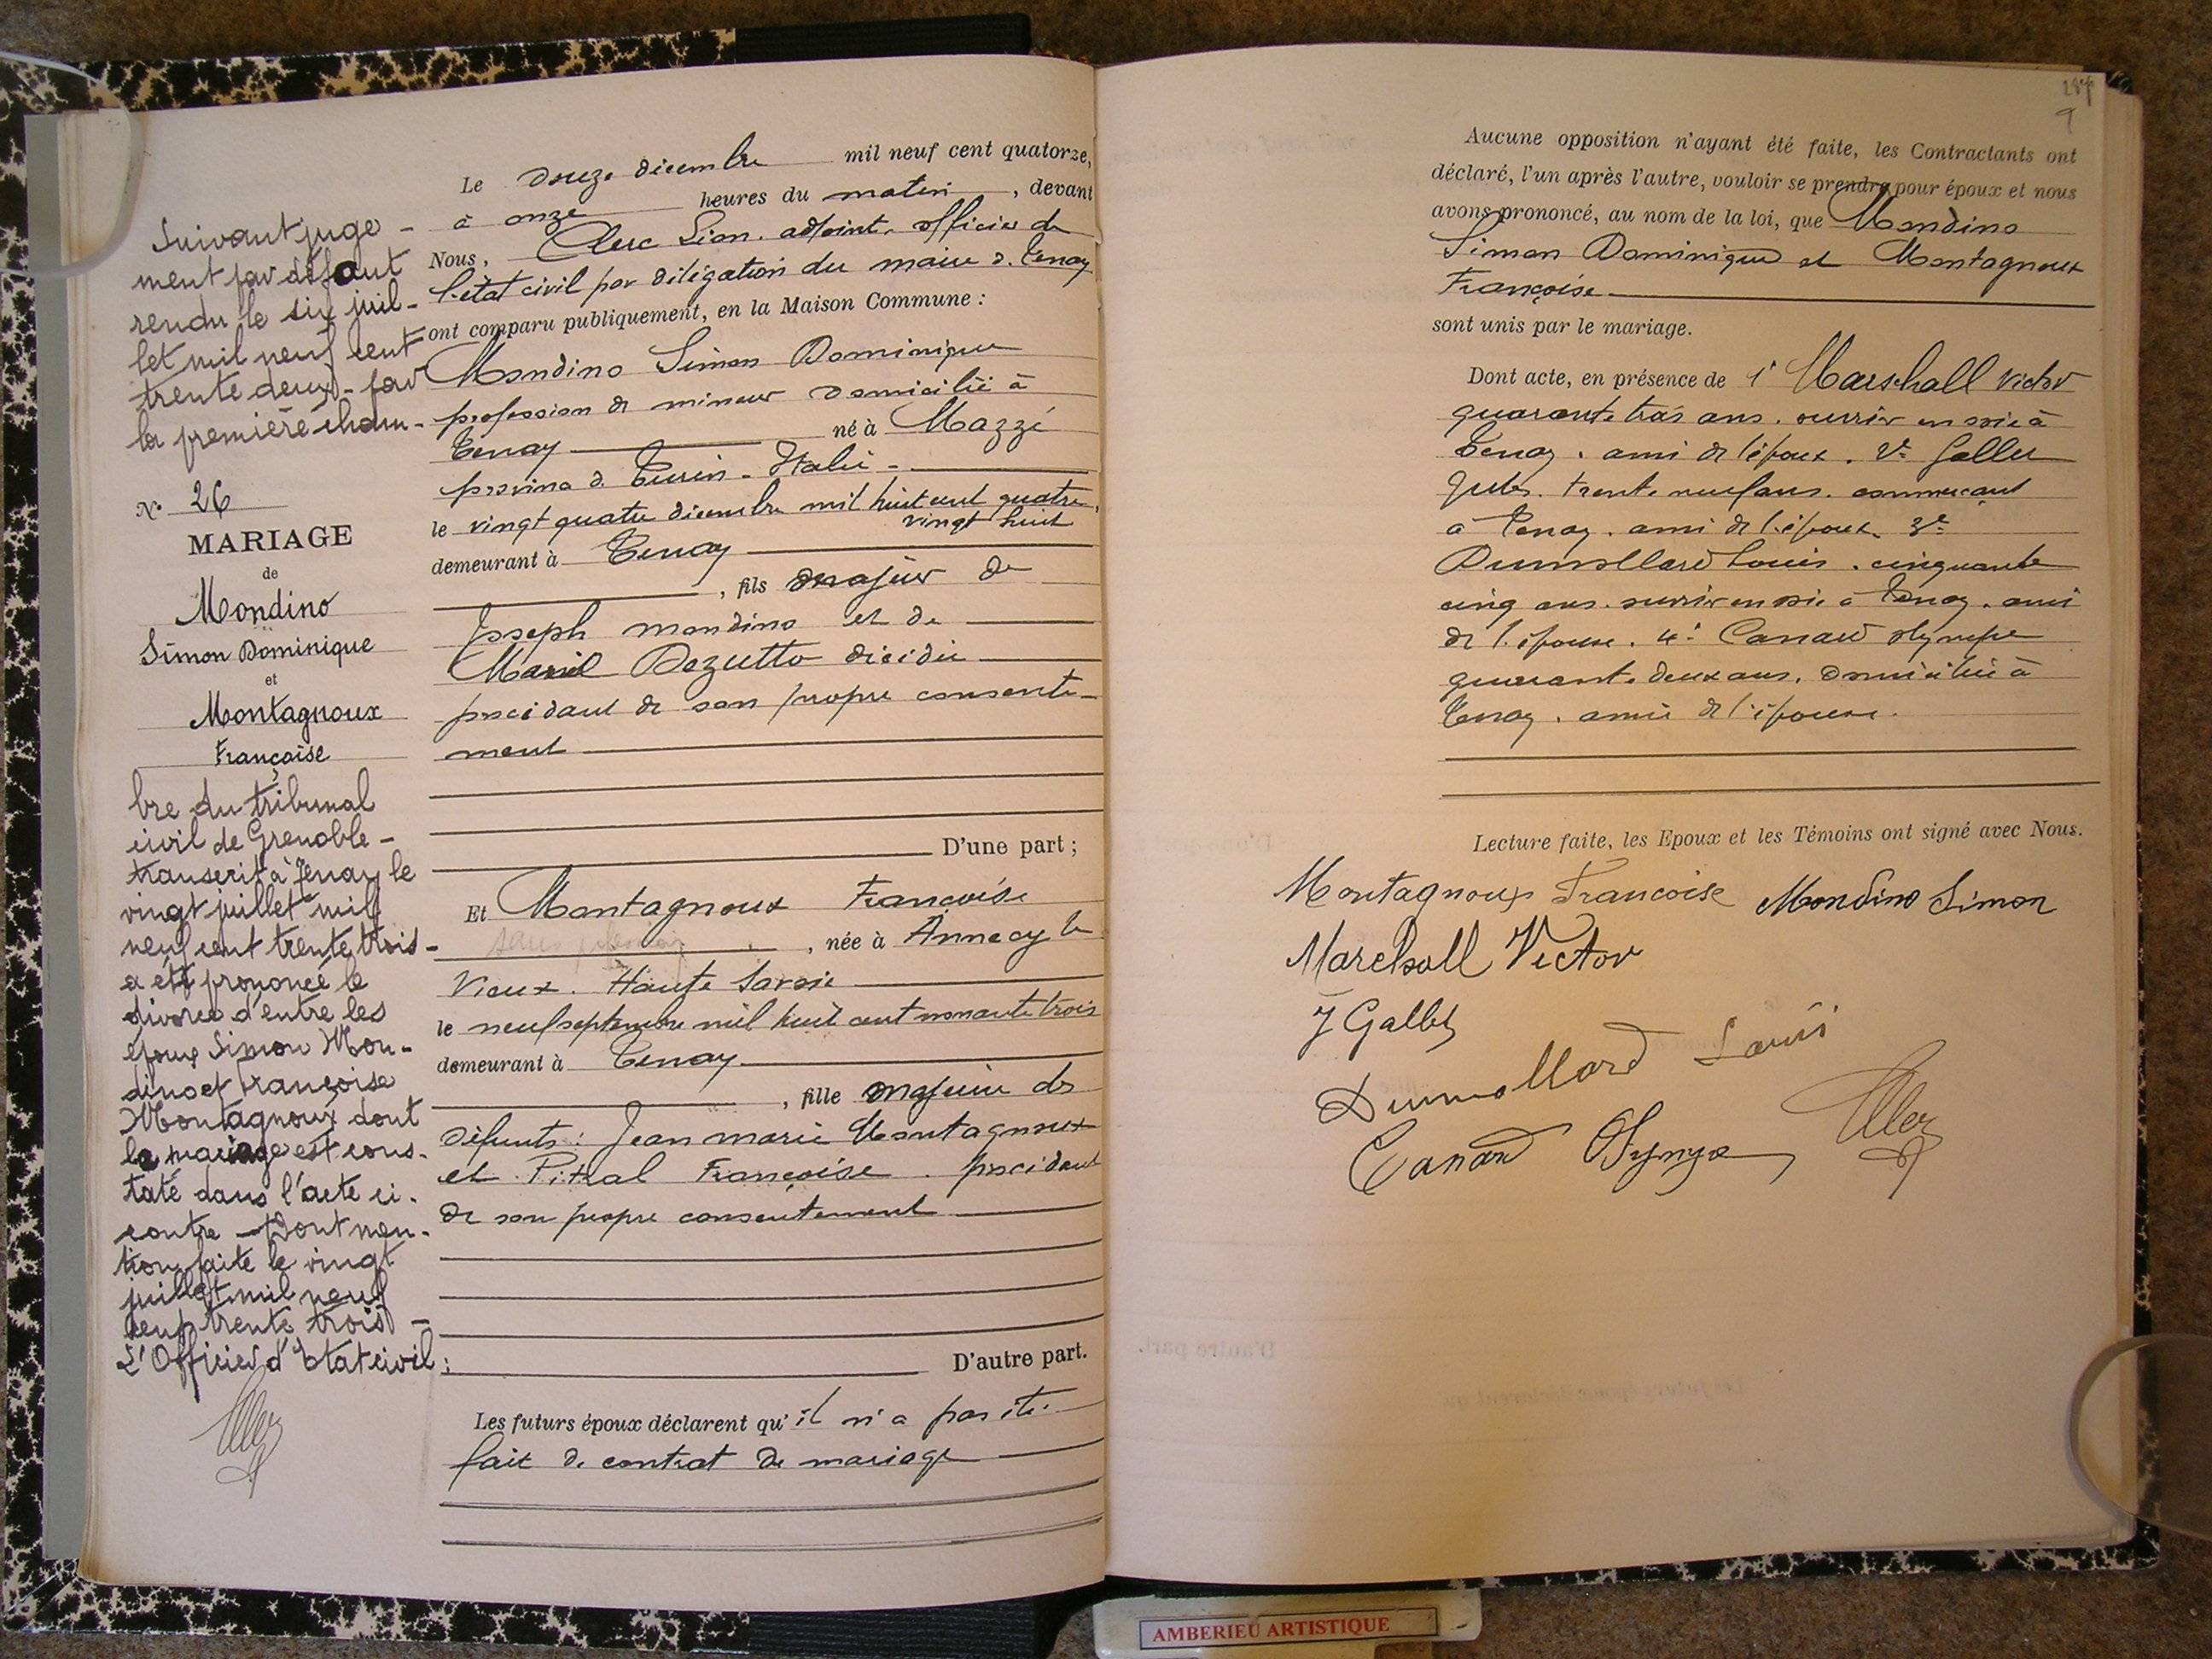 Suivant juge-
ment par défaut
rendu le six juil-
let mil neuf cent
trente deux - par
la première cham-
N° 26
MARIAGE
de
Mondino
Simon Dominique
et
Montagnoux
Françoise
bre du tribunal
civil de Grenoble -
transcrit à Tenay le
vingt juillet mil
neuf cent trente trois -
a été prononcé le
divorce d'entre les
époux Simon Mon-
dino et Françoise
Montagnoux dont
le mariage est cons-
taté dans l'acte ci-
contre - Dont men-
tion faite le vingt
juillet mil neuf
cent trente trois -
L'Officier d'Etat civil :
Le douze décembre mil neuf cent quatorze,
à onze heures du matin, devant
Nous, Clerc Léon. adjoint. officier de
l'état civil par délégation du maire de Tenay
ont comparu publiquement, en la Maison Commune :
Mondino Simon Dominique
profession de mineur domicilié à
Tenay né à Mazzé
province de Turin - Italie -
le vingt quatre décembre mil huit cent quatre
vingt huit
demeurant à Tenay
, fils majeur de
Joseph mondino et de
Marie Dezutto décidée
procédant de son propre consente-
ment
D'une part ;
Et Montagnoux Françoise
sans , née à Annecy le
Vieux. Haute Savoie
le neuf septembre mil huit cent nonante trois
demeurant à Tenay
, fille majeure des
défunts : Jean marie Montagnoux
et Pitral Françoise. procédant
de son propre consentement
D'autre part.
Les futurs époux déclarent qu'il n'a pas été
fait de contrat de mariage
9
Aucune opposition n'ayant été faite, les Contractants ont
déclaré, l'un après l'autre, vouloir se prendre pour époux et nous
avons prononcé, au nom de la loi, que Mondino
Simon Dominique et Montagnoux
Françoise
sont unis par le mariage.
Dont acte, en présence de 1° Marschall Victor
quarante trois ans. ouvrier en soie à
Tenay. ami de l'époux. 2° Gallet
Jules. trente neuf ans. commerçant
à Tenay. ami de l'époux. 3°
Dumollard Louis. cinquante
cinq ans. ouvrier en soie à Tenay. ami
de l'épouse. 4° Canard Olympe
quarante deux ans. domiciliée à
Tenay. amie de l'épouse.
Lecture faite, les Epoux et les Témoins ont signé avec Nous.
Montagnoux Francoise Mondino Simon
Marchall Victor
J Gallet
Dumollard Louis
Canard Olympe
AMBERIEU ARTISTIQUE